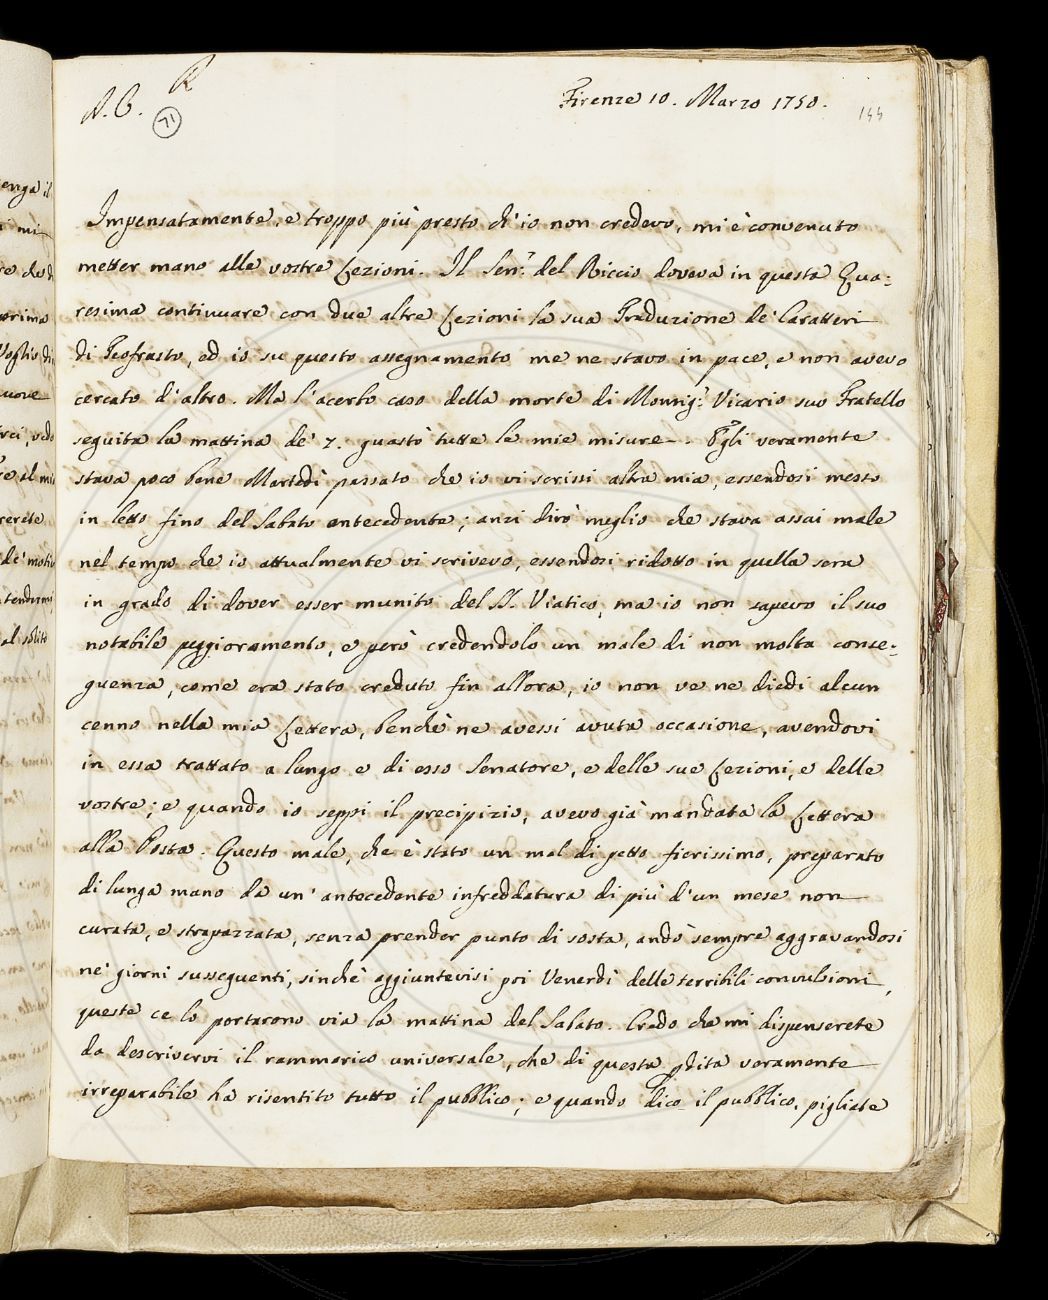 A. C. R
71
Firenze 10. Marzo 1750.
144
Impensatamente, e troppo più presto ch'io non credevo, mi è convenuto
metter mano alle vostre Lezioni. Il Sen.r del Riccio doveva in questa Qua:
resima continuare con due altre Lezioni la sua Traduzione de' Caratteri
di Teofrasto, ed io su questo assegnamento me ne stavo in pace, e non avevo
cercato d'altro. Ma l'acerbo caso della morte di Monsig.r Vicario suo Fratello
seguita la mattina de' 7. guastò tutte le mie misure. Egli veramente
stava poco bene Martedì passato che io vi scrissi altra mia, essendosi messo
in letto fino del Sabato antecedente; anzi dirò meglio che stava assai male
nel tempo che io attualmente vi scrivevo, essendosi ridotto in quella sera
in grado di dover esser munito del SS. Viatico, ma io non sapevo il suo
notabile peggioramento, e però credendolo un male di non molta conse:
guenza, come era stato creduto fin allora, io non ve ne diedi alcun
cenno nella mia Lettera, benchè ne avessi avuta occasione, avendovi
in essa trattato a lungo e di esso Senatore, e delle sue Lezioni, e delle
vostre; e quando io seppi il precipizio, avevo già mandata la Lettera
alla Posta. Questo male, che è stato un mal di petto fierissimo, preparato
di lunga mano da un' antecedente infreddatura di più d'un mese non
curata, e strapazzata, senza prender punto di sosta, andò sempre aggravandosi
ne' giorni susseguenti, sinchè aggiuntevisi poi Venerdì delle terribili convulsioni,
queste ce lo portarono via la mattina del Sabato. Credo che mi dispenserete
da descrivervi il rammarico universale, che di questa pdita veramente
irreparabile ha risentito tutto il pubblico; e quando dico il pubblico, pigliate